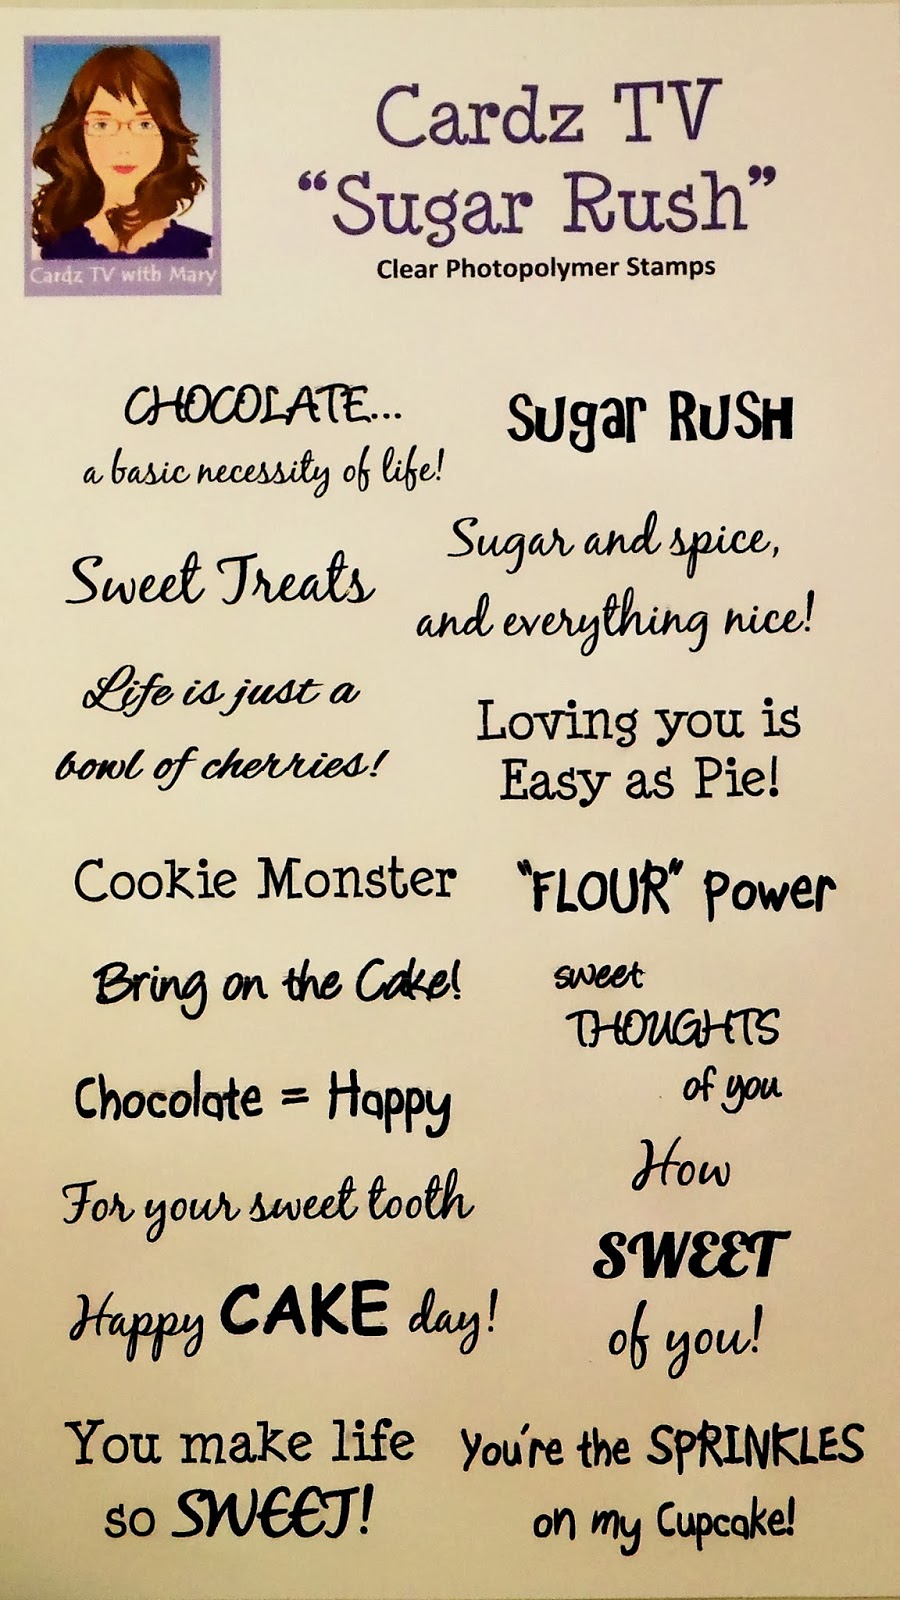 Cardz TV with Mary
Cardz TV
“Sugar Rush”
Clear Photopolymer Stamps
CHOCOLATE...
a basic necessity of life!
Sweet Treats
Life is just a
bowl of cherries!
Cookie Monster
Bring on the Cake!
Chocolate = Happy
For your sweet tooth
Happy CAKE day!
You make life
so SWEET!
Sugar RUSH
Sugar and spice,
and everything nice!
Loving you is
Easy as Pie!
"FLOUR" Power
sweet
THOUGHTS
of you
How
SWEET
of you!
You're the SPRINKLES
on my Cupcake!